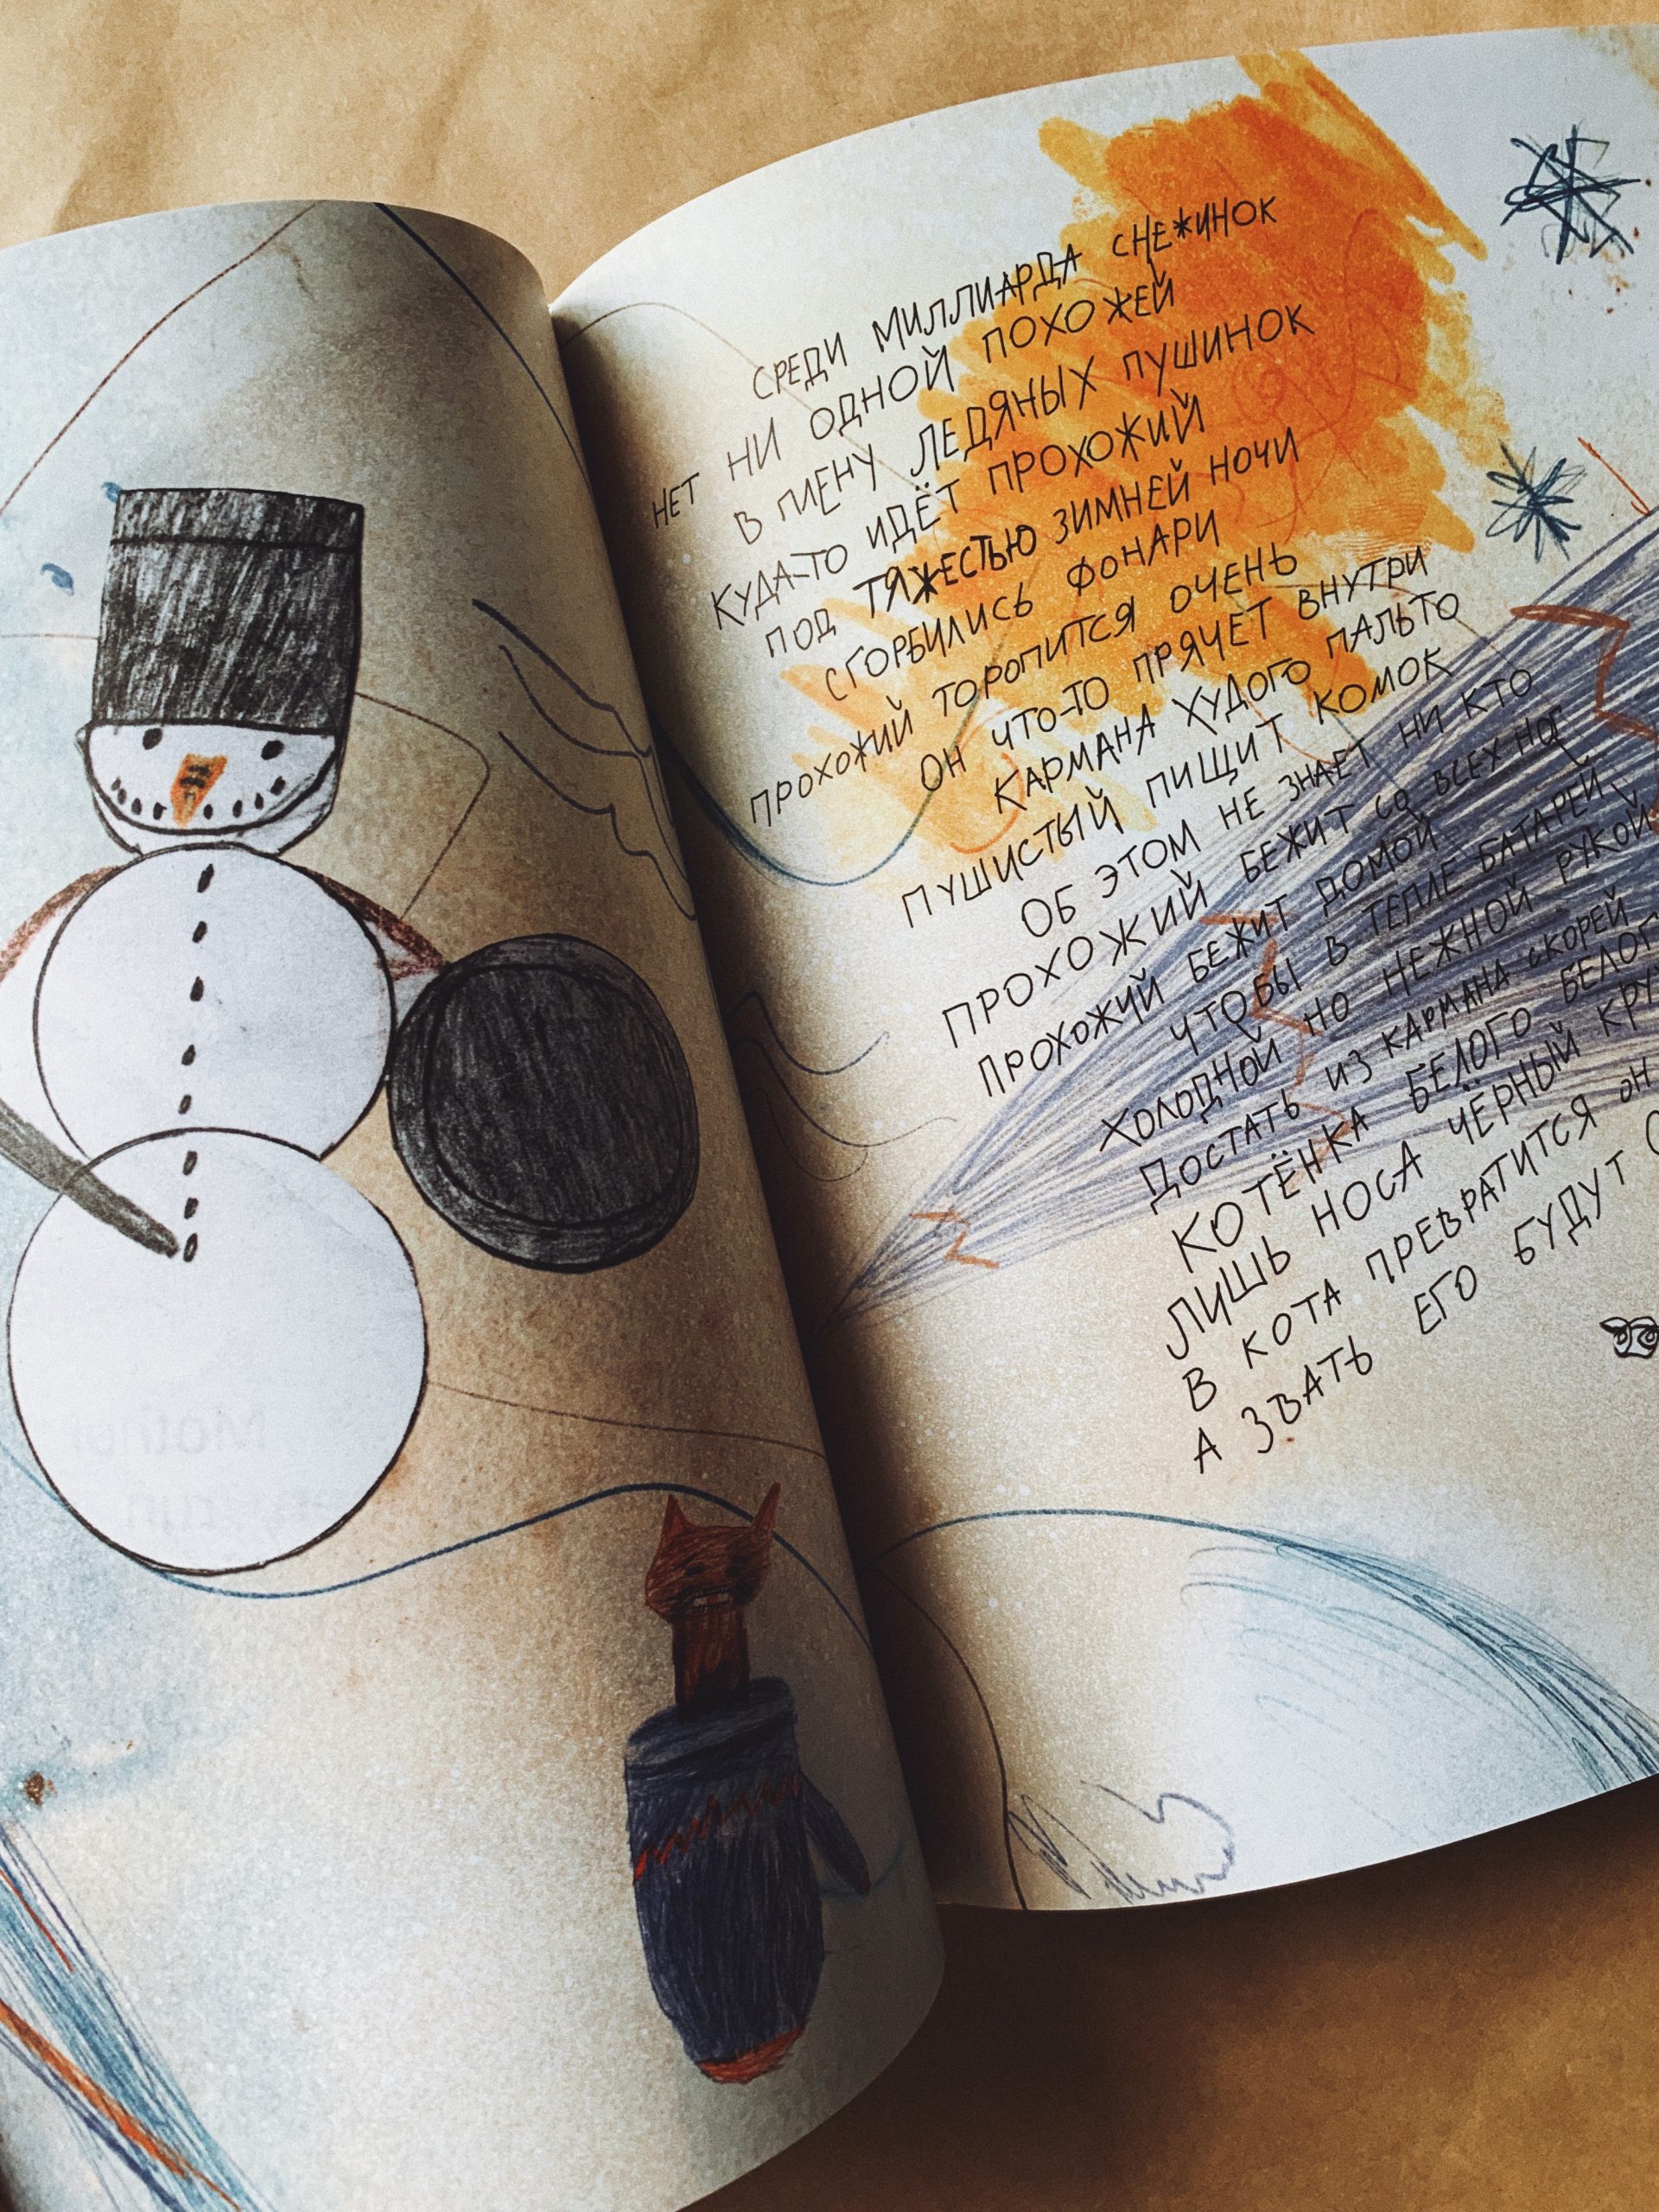 СРЕДИ МИЛЛИАРДА СНЕЖИНОК
НЕТ НИ ОДНОЙ ПОХОЖЕЙ
В ПЛЕНУ ЛЕДЯНЫХ ПУШИНОК
КУДА-ТО ИДЁТ ПРОХОЖИЙ
ПОД ТЯЖЕСТЬЮ ЗИМНЕЙ НОЧИ
СГОРБИЛИСЬ ФОНАРИ
ПРОХОЖИЙ ТОРОПИТСЯ ОЧЕНЬ
ОН ЧТО-ТО ПРЯЧЕТ ВНУТРИ
КАРМАНА ХУДОГО ПАЛЬТО
ПУШИСТЫЙ ПИЩИТ КОМОК
ОБ ЭТОМ НЕ ЗНАЕТ НИ КТО
ПРОХОЖИЙ БЕЖИТ СО ВСЕХ НОГ
ПРОХОЖИЙ БЕЖИТ ДОМОЙ
ЧТОБЫ В ТЕПЛЕ БАТАРЕЙ
ХОЛОДНОЙ НО НЕЖНОЙ РУКОЙ
ДОСТАТЬ ИЗ КАРМАНА СКОРЕЙ
КОТЁНКА БЕЛОГО
ЛИШЬ НОСА ЧЁРНЫЙ
В КОТА ПРЕВРАТИТСЯ ОН
А ЗВАТЬ ЕГО БУДУТ